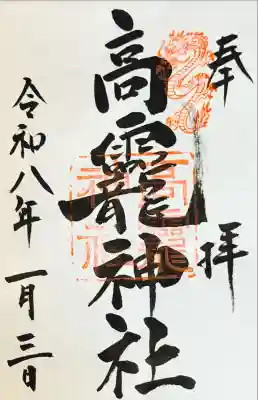 奉拝
高龗神社
令和八年一月三日